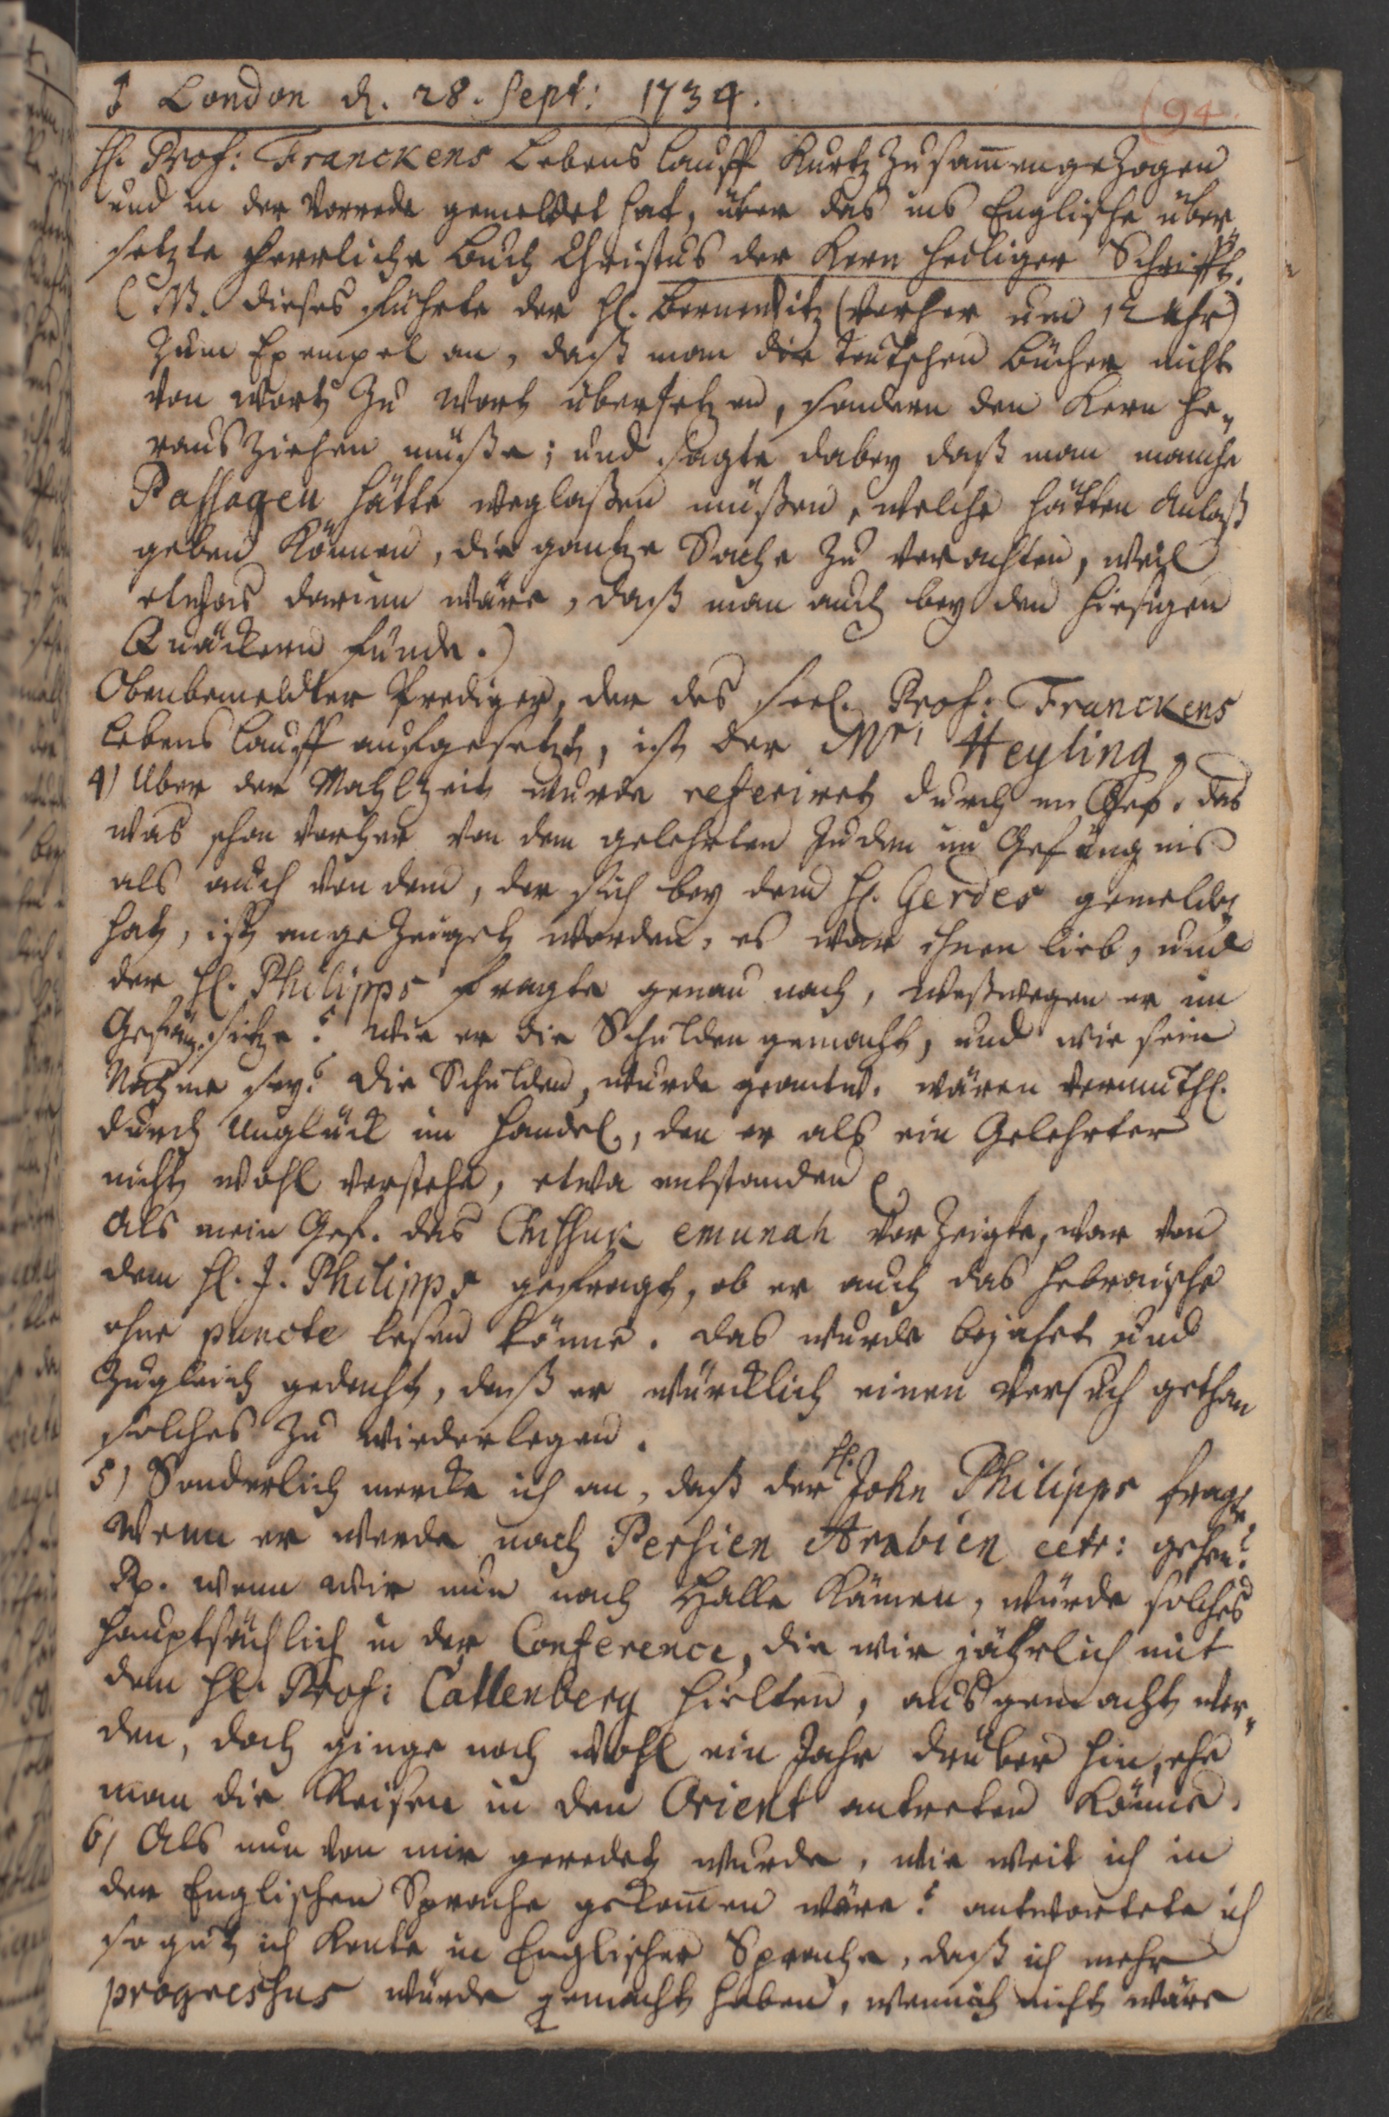 London d. 28. Sept: 1734.
(94
H. Prof: Franckens Lebens Lauff Kurtz zusam̅engezogen
und in der Vorrede gemeldet hat, über das ins Englische über
setzte herrliche Buch Christus der Kern heiliger Schrifft.
(NB. dieses führte der H. Berenwitz (vorher um 12 Uhr)
zum Exempel an, daß man die teutschen Bücher nicht
von Wort zu Wort übersetzen, sondern den Kern he-
rausziehen müße; und sagte dabey daß man manche
Passagen hätte weglaßen müßen, welche hätten Anlaß
geben können, die gantze Sache zu verachten, weil
etwas darinn wäre, daß man auch bey den hiesigen
Quäckern fünde.)
Obenbemeldter Prediger, der des seel. Prof: Franckens
Lebens Lauff aufgesetzt, ist der Mr. Heyling.
4) Uber der Mahlzeit wurde referiret durch m. Gef. das
was schon vorher von dem gelehrten Juden im Gefängnis
als auch von dem, der sich bey dem H. Gerdes gemeldet
hat, ist angezeiget worden, es war ihnen lieb, und
der H. Philipps fragte genau nach, weßwegen er im
Gefäng. sitze? wie er die Schulden gemacht, und wie sein
Nahme sey? die Schulden, wurde geantw. wären vermuthl.
durch Unglück im Handel, den er als ein Gelehrter
nicht wohl verstehe, etwa entstanden
Als mein Gef. das Chissuk emunah vorzeigte, war von
dem H. J. Philipps gefragt, ob er auch das Hebraische
ohne puncte lesen könne. das wurde bejahet und
zugleich gedacht, daß er würcklich einen Versuch gethan
solches zu wiederlegen.
5) Sonderlich mercke ich an, daß der H. John Philipps fragte
Wenn er werde nach Persien Arabien cetr: gehen?
Rp. wenn wir nun nach Halle kämen, würde solches
hauptsächlich in der Conference, die wir jährlich mit
dem H. Prof: Callenberg hielten, ausgemacht wer-
den, doch ginge noch wohl ein Jahr drüber hin, ehe
man die Reisen in den Orient antreten könne.
6) Als nun von mir geredet wurde, wie weit ich in
der Englischen Sprache gekom̅en wäre? antwortete ich
so gut ich konte in Englischer Sprache, daß ich mehr
progressus würde gemacht haben, wenn ich nicht wäre